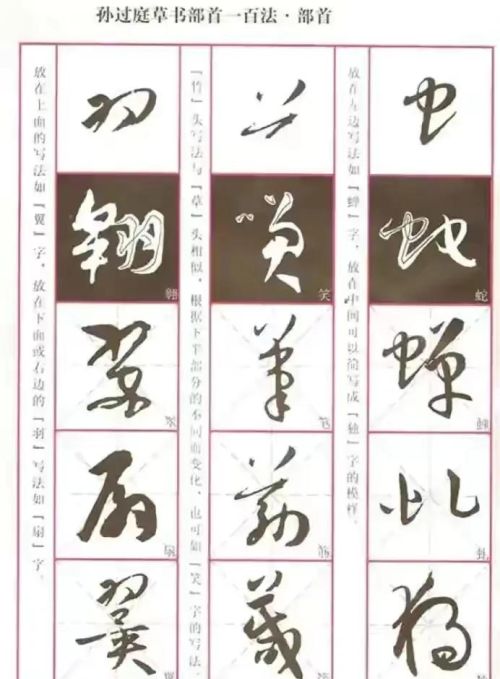 孙过庭草书部首一百法·部首
虫
放在左边写法如「蝉」字，放在中间可以简写成「独」字的模样。
蛇
蛇
蝉
蝉
虬
虬
独
「竹」头写法与「草」头相似，根据下半部分的不同而变化，也可如「笑」字的写法。
笑
笑
笔
笔
筋
筋
箴
羽
放在上面的写法如「翼」字，放在下面或右边的「羽」写法如「扇」字。
翱
翱
翠
翠
扇
扇
翼
翼